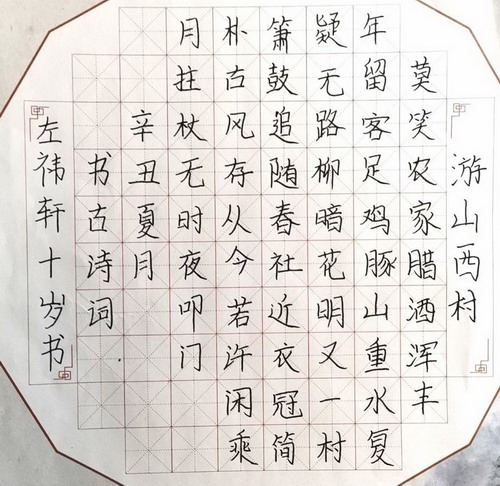 游山西村
莫笑农家腊酒浑丰
年留客足鸡豚山重水复
疑无路柳暗花明又一村
箫鼓追随春社近衣冠简
朴古风存从今若许闲乘
月拄杖无时夜叩门
辛丑夏月
书古诗词
左祎轩十岁书